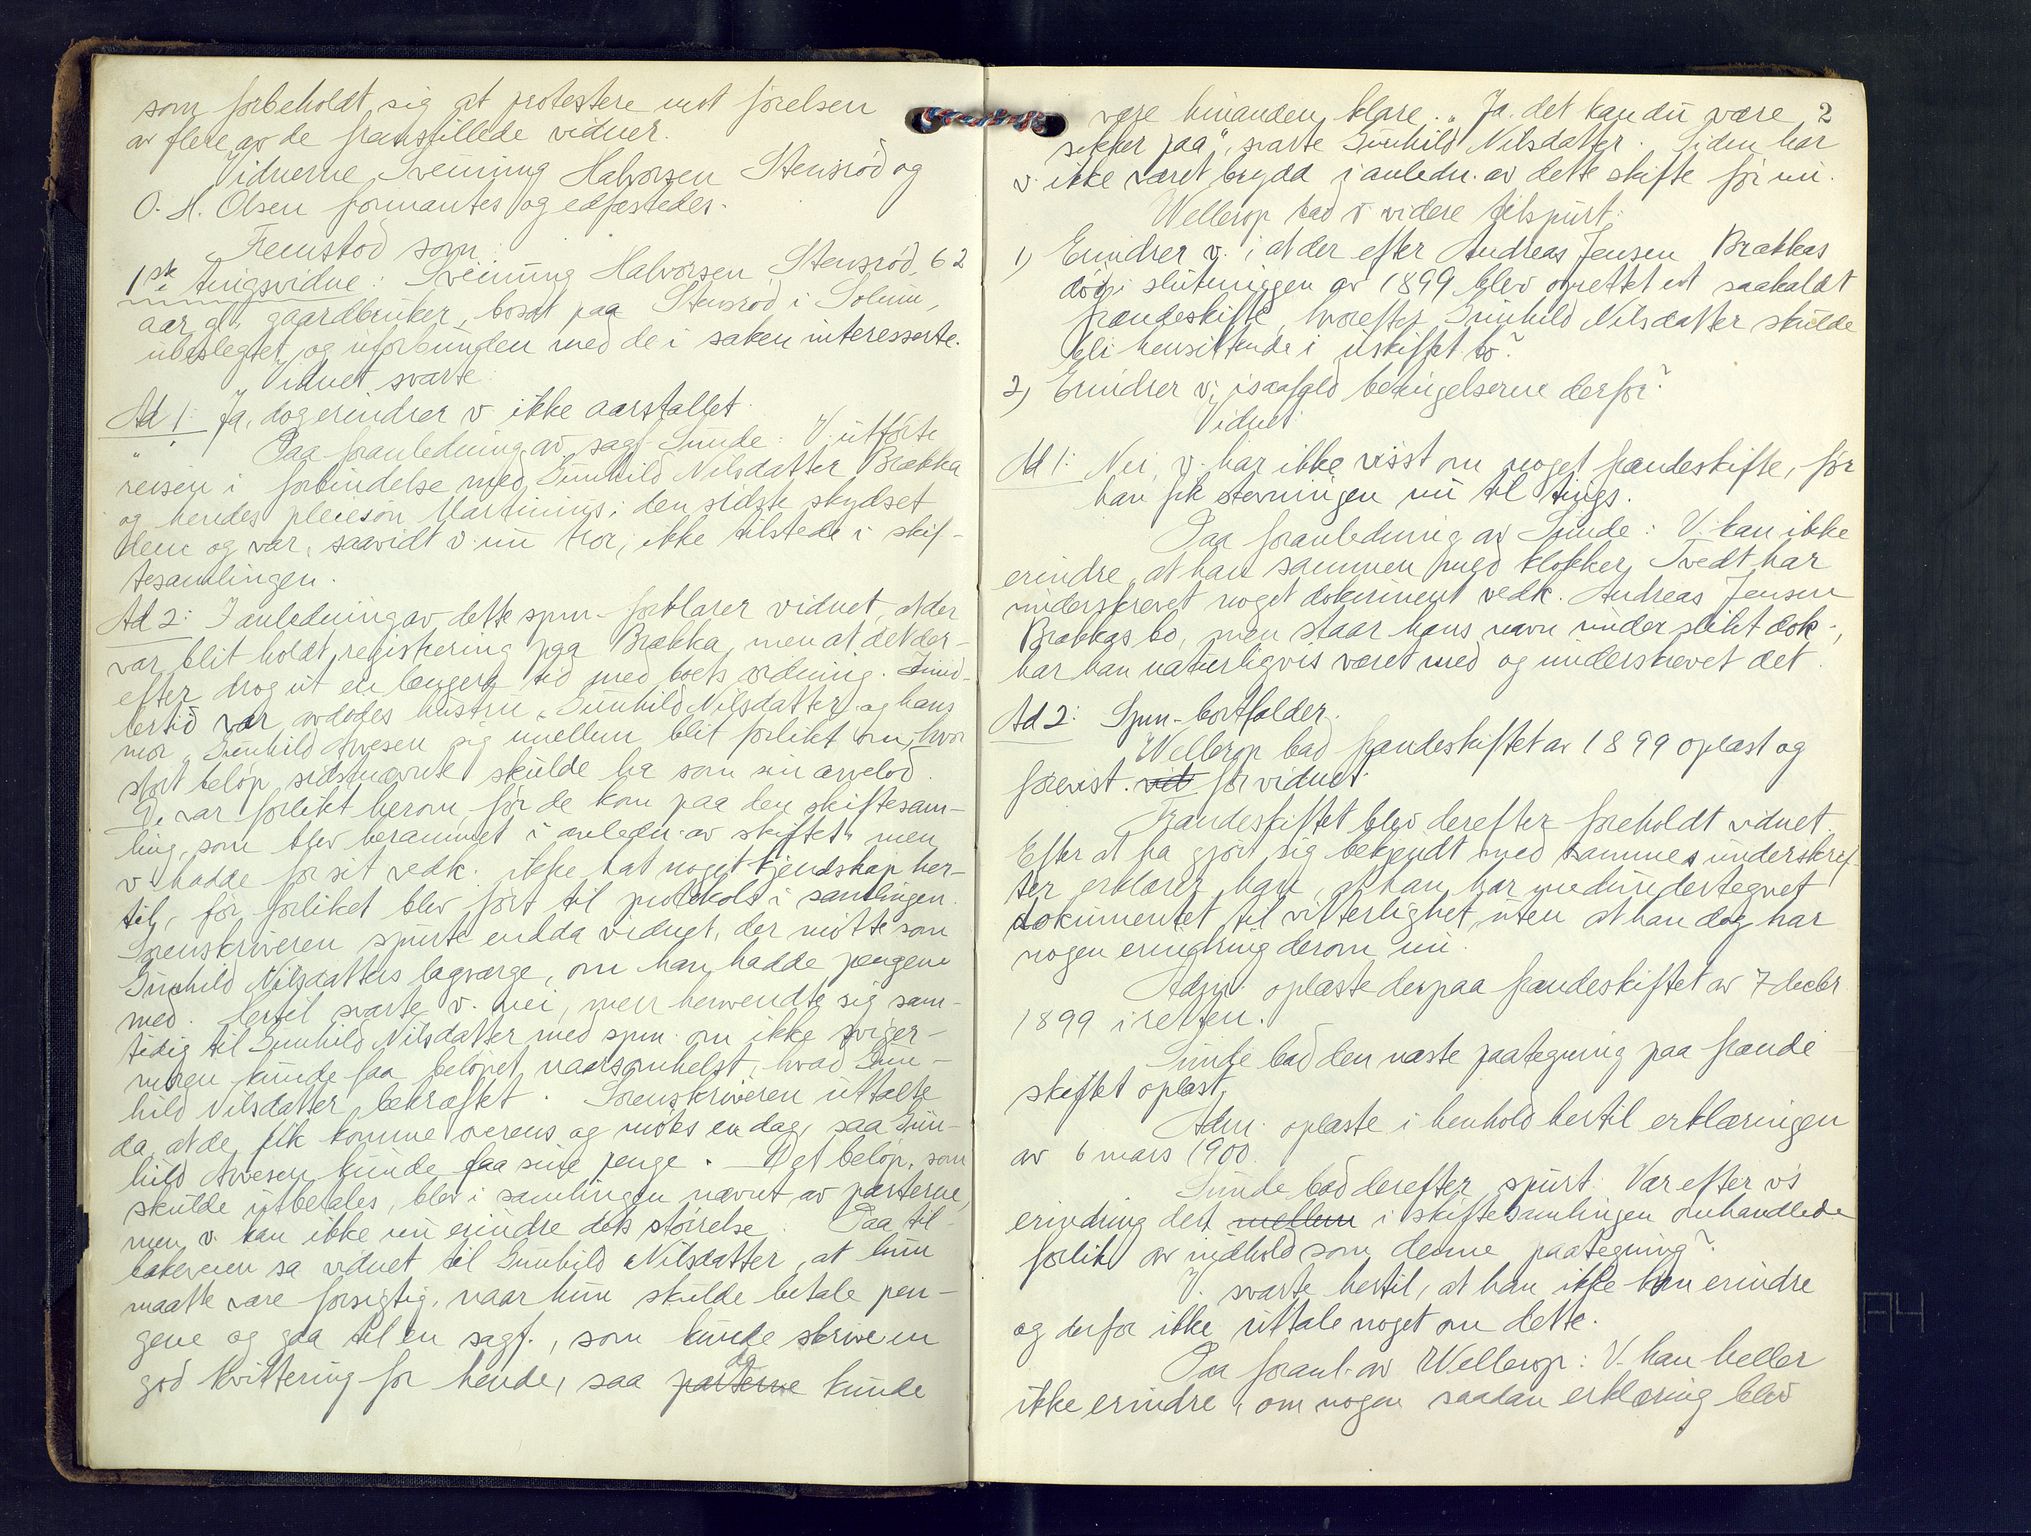 som forbeholdt sig at protestere mot förelsen
av flere av de framstillede vidner.
Vidnerne Sveinung Halvorsen Stensrød og
O. H. Olsen formantes og edfæstedes.
Fremstod som:
1ste tingsvidne: Sveinung Halvorsen Stensrød, 62
aar gl., gaardbruker, bosat paa Stensrød i Solum,
ubeslegtet og uforbunden med de i saken interesserte.
Vidnet svarte:
Ad 1: Ja, dog erindrer v. ikke aarstallet.
" Paa foranledning av sagf. Sunde: V. utførte
reisen i forbindelse med Gunhild Nilsdatter Brækka
og hendes pleiesøn Martinius; den sidste skydset
dem og var, saavidt v. nu tror, ikke tilstede i skif-
tesamlingen.
Ad 2: I anledning av dette spm. forklarer vidnet, at der
var blit holdt registrering paa Brækka, men at det der-
efter drog ut en længere tid med boets ordning. Imid-
lertid var avdødes hustru, Gunhild Nilsdatter og hans
mor, Gunhild Avesen sig imellem blit forlikt om, hvor
stort beløp sidstnævnte skulde ha som sin arvelod.
De var forlikt herom, før de kom paa den skiftesam-
ling, som blev berammet i anledn. av skiftet, men
v. hadde for sit vedk. ikke hat noget kjendskap her-
til, før forliket blev ført til protokols i samlingen.
Sorenskriveren spurte endda vidnet, der møtte som
Gunhild Nilsdatters lagværge, om han hadde pengene
med. Hertil svarte v. nei, men henvendte sig sam-
tidig til Gunhild Nilsdatter med spm. om ikke sviger-
moren kunde faa beløpet naarsomhelst, hvad Gun-
hild Nilsdatter bekræftet. Sorenskriveren uttalte
da, at de fik komme overens og møtes en dag, saa Gun-
hild Avesen kunde faa sine penge. - Det beløp, som
skulde utbetales, blev i samlingen nævnt av parterne,
men v. kan ikke nu erindre dets størrelse. Paa til-
bakeveien sa vidnet til Gunhild Nilsdatter, at hun
maatte være forsigtig, naar hun skulde betale pen-
gene og gaa til en sagf., som kunde skrive en
god kvittering for hende, saa parterne de kunde
2
være hinanden klare. "Ja det kan du være
sikker paa", svarte Gunhild Nilsdatter. Siden har
v. ikke været brydd i anledn. av dette skifte før nu.
Wellerop bad v. videre tilspurt:
1) Erindrer v., at der efter Andreas Jensen Brækkas
død i slutningen av 1899 blev oprettet et saakaldt
frændeskifte, hvorefter Gunhild Nilsdatter skulde
bli hensittende i uskiftet bo?
2) Erindrer v. isaafald betingelserne derfor?
Vidnet
Ad 1: Nei, v. har ikke visst om noget frændeskifte, før
han fik stevningen nu til tings.
Paa foranledning av Sunde: V. kan ikke
erindre, at han sammen med klokker Tvedt har
underskrevet noget dokument vedk. Andreas Jensen
Brækkas bo, men staar hans navn under slikt dok.,
har han naturligvis været med og underskrevet det.
Ad 2: Spm. bortfalder.
Wellerop bad frændeskiftet av 1899 oplæst og
forevist vid for vidnet.
Frændeskiftet blev derefter foreholdt vidnet.
Efter at ha gjort sig bekjendt med sammes underskrif-
ter erklærer han, at han har medundertegnet
dokumentet til vitterlighet, uten at han dog har
nogen erindring derom nu.
Adm. oplæste derpaa frændeskiftet av 7 decbr.
1899 i retten.
Sunde bad den næste paategning paa frænde-
skiftet oplæst.
Adm. oplæste i henhold hertil erklæringen
av 6 mars 1900.
Sunde bad derefter spurt: Var efter v's
erindring det mellem i skiftesamlingen omhandlede
forlik av indhold som denne paategning?
V. svarte hertil, at han ikke kan erindre
og derfor ikke uttale noget om dette.
Paa foranl. av Wellerop: V. kan heller
ikke erindre, om nogen saadan erklæring blev